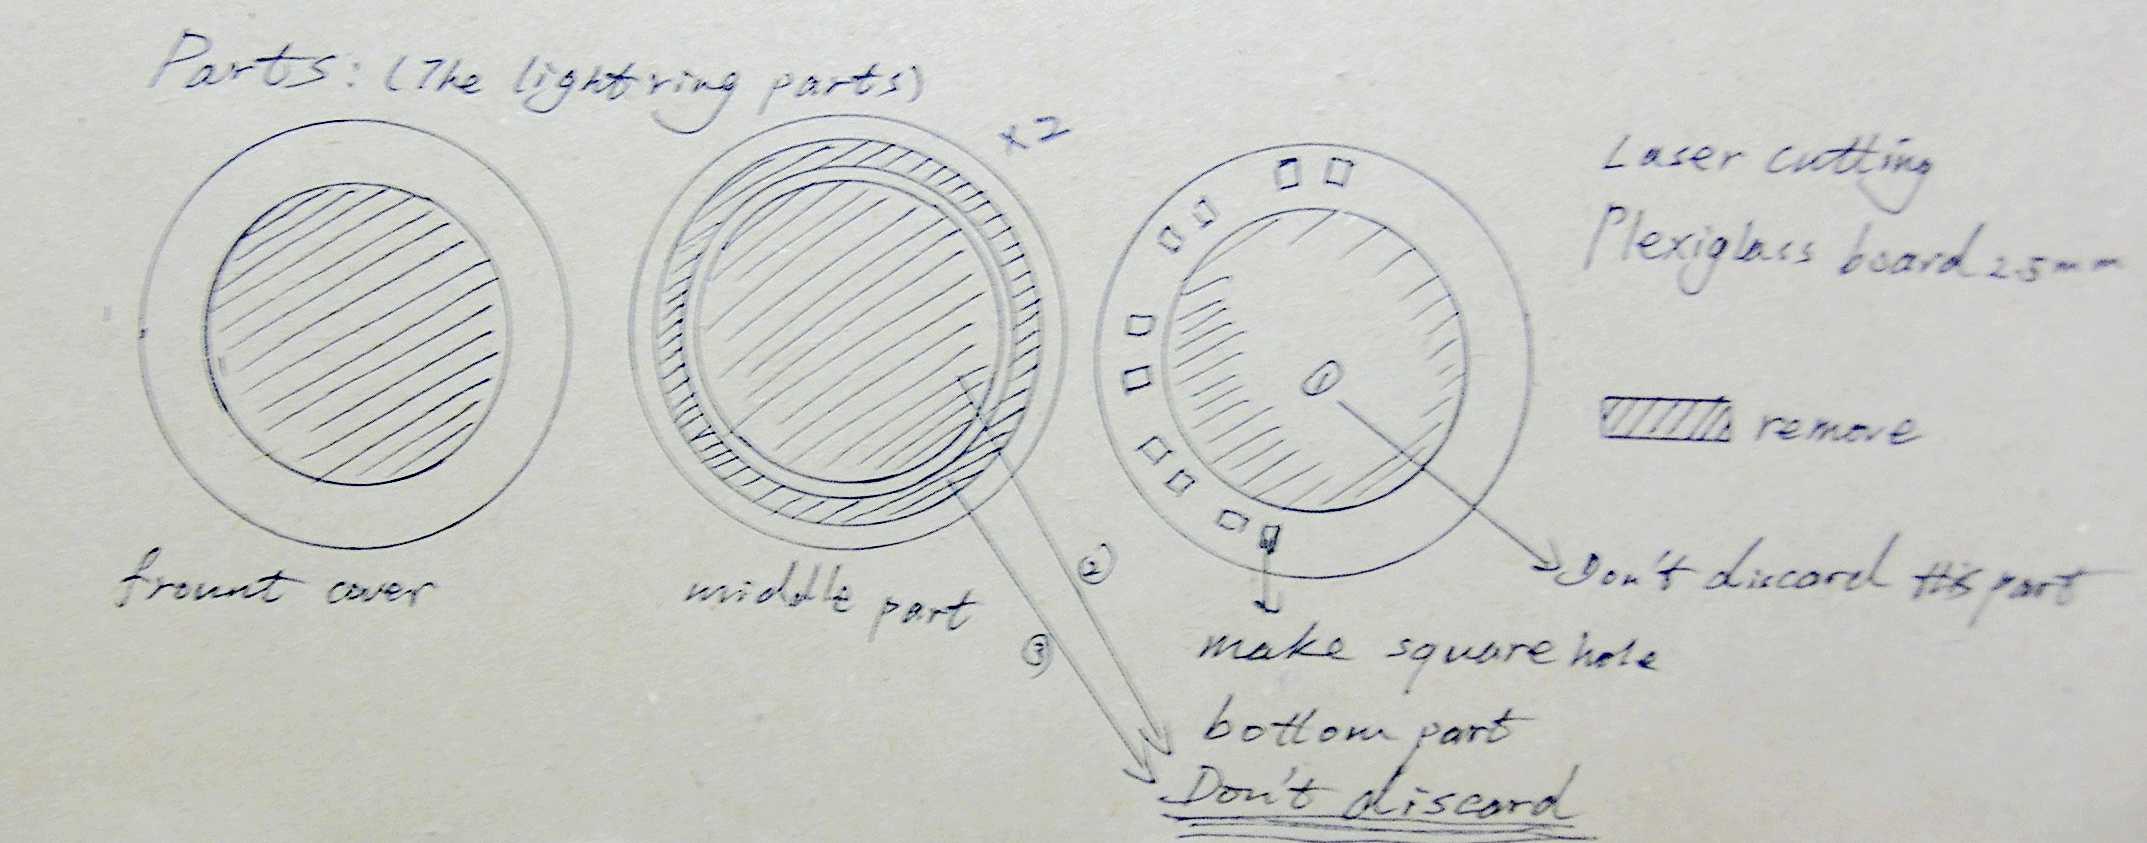 Parts: (The light ring parts)
x2
Laser cutting
Plexiglass board 2.5mm
①
remove
frount cover
middle part
②
③
Don't discard this part
make square hole
bottom part
Don't discard